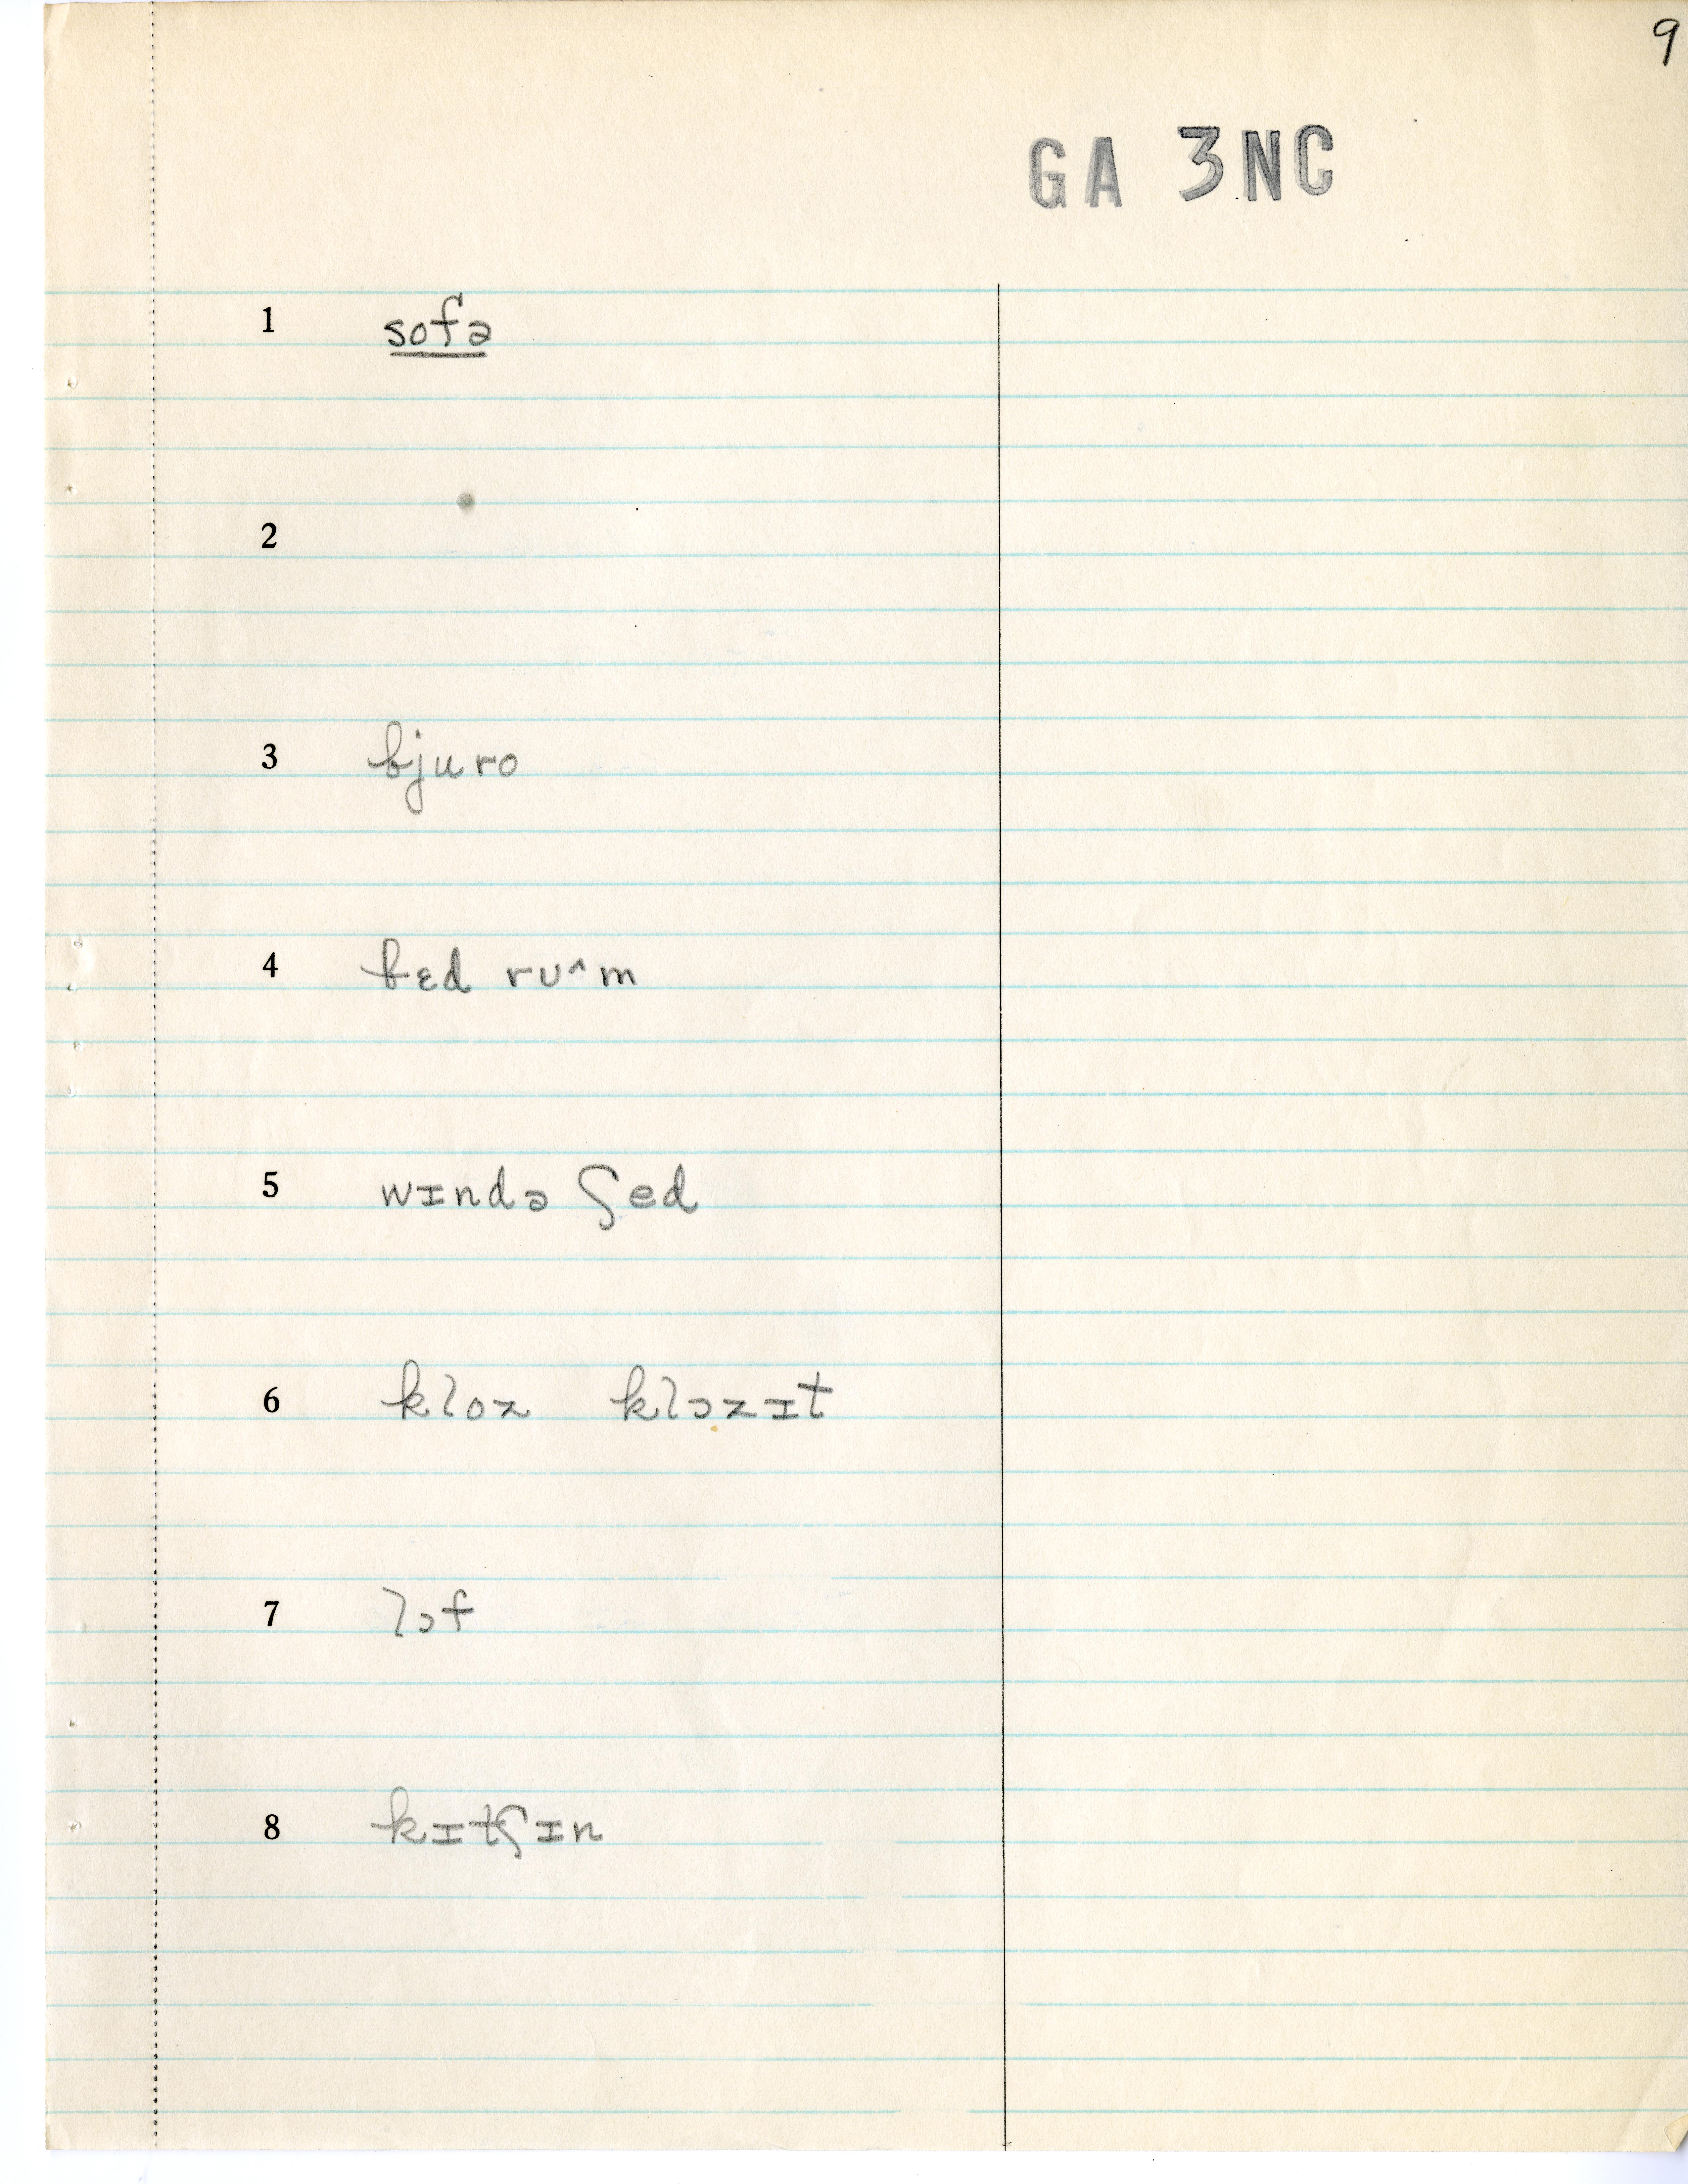 9
GA 3NC
1 sofə
2
3 bjuro
4 bɛd ruˆm
5 wɪndə ʃed
6 kloz klɔzɪt
7 lɔf
8 kɪtʃɪn